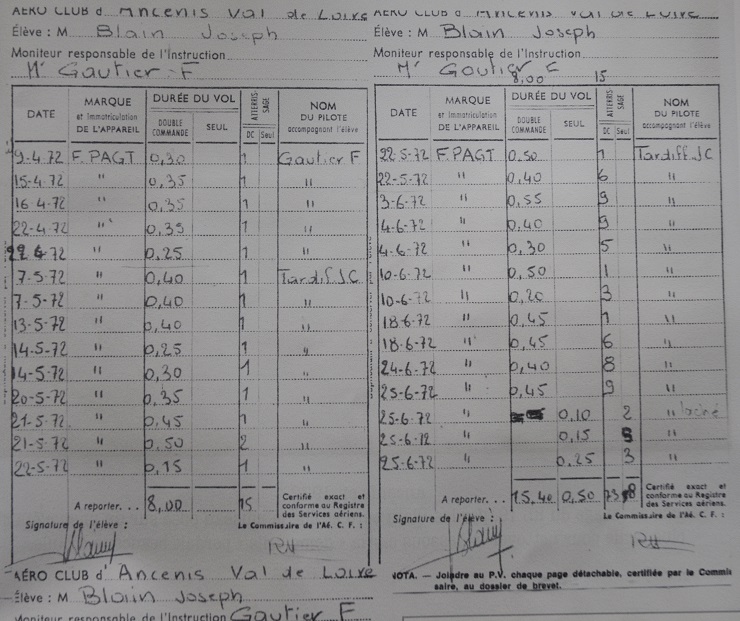 AÉRO CLUB d' Ancenis Val de Loire
Élève : M Blain Joseph
Moniteur responsable de l'Instruction
Mr Gautier F
DATE MARQUE et Immatriculation DE L'APPAREIL DURÉE DU VOL DOUBLE COMMANDE SEUL ATTERRIS SAGE DC Seul NOM DU PILOTE accompagnant l'élève
9-4.72 F.PAGT 0,30 1 Gautier F
15-4.72 " 0,35 1 "
16-4.72 " 0,35 1 "
22-4.72 " 0,35 1 "
22 4 72 " 0,25 1 "
7-5.72 " 0,40 1 Tardif JC
7-5.72 " 0,40 1 "
13-5.72 " 0,40 1 "
14-5.72 " 0,25 1 "
14-5.72 " 0,30 1 "
20-5-72 " 0,35 1 "
21-5.72 " 0,45 1 "
21-5.72 " 0,50 2 "
22-5-72 " 0,15 1 "
A reporter. . . 8,00 15 Certifié exact et conforme au Registre des Services aériens.
Signature de l'élève :
Le Commissaire de l'Aé. C. F. :
AÉRO CLUB d' Ancenis Val de Loire
Élève : M Blain Joseph
Moniteur responsable de l'Instruction Gautier F
AÉRO CLUB d' Ancenis Val de Loire
Élève : M Blain Joseph
Moniteur responsable de l'Instruction
Mr
8,00 15
DATE MARQUE et Immatriculation DE L'APPAREIL DURÉE DU VOL DOUBLE COMMANDE SEUL ATTERRIS SAGE DC Seul NOM DU PILOTE accompagnant l'élève
22.5-72 F.PAGT 0,50 1 Tardif JC
22-5-72 " 0,40 6 "
3-6.72 " 0,55 9 "
4-6.72 " 0,40 9 "
4-6.72 " 0,30 5 "
10-6.72 " 0,50 1 "
10-6-72 " 0,20 3 "
18-6-72 " 0,45 1 "
18-6.72 " 0,45 6 "
24-6.72 " 0,40 8 "
25-6-72 " 0,45 9 "
25-6.72 " 0,10 2 " laché
25-6-72 " 0,15 "
25.6-72 " 0,25 3 "
A reporter. . . 15.40 0,50 73 8 Certifié exact et conforme au Registre des Services aériens.
Signature de l'élève :
Le Commissaire de l'Aé. C. F. :
NOTA. — Joindre au P.V. chaque page détachable, certifiée par le Commis
saire, au dossier de brevet.